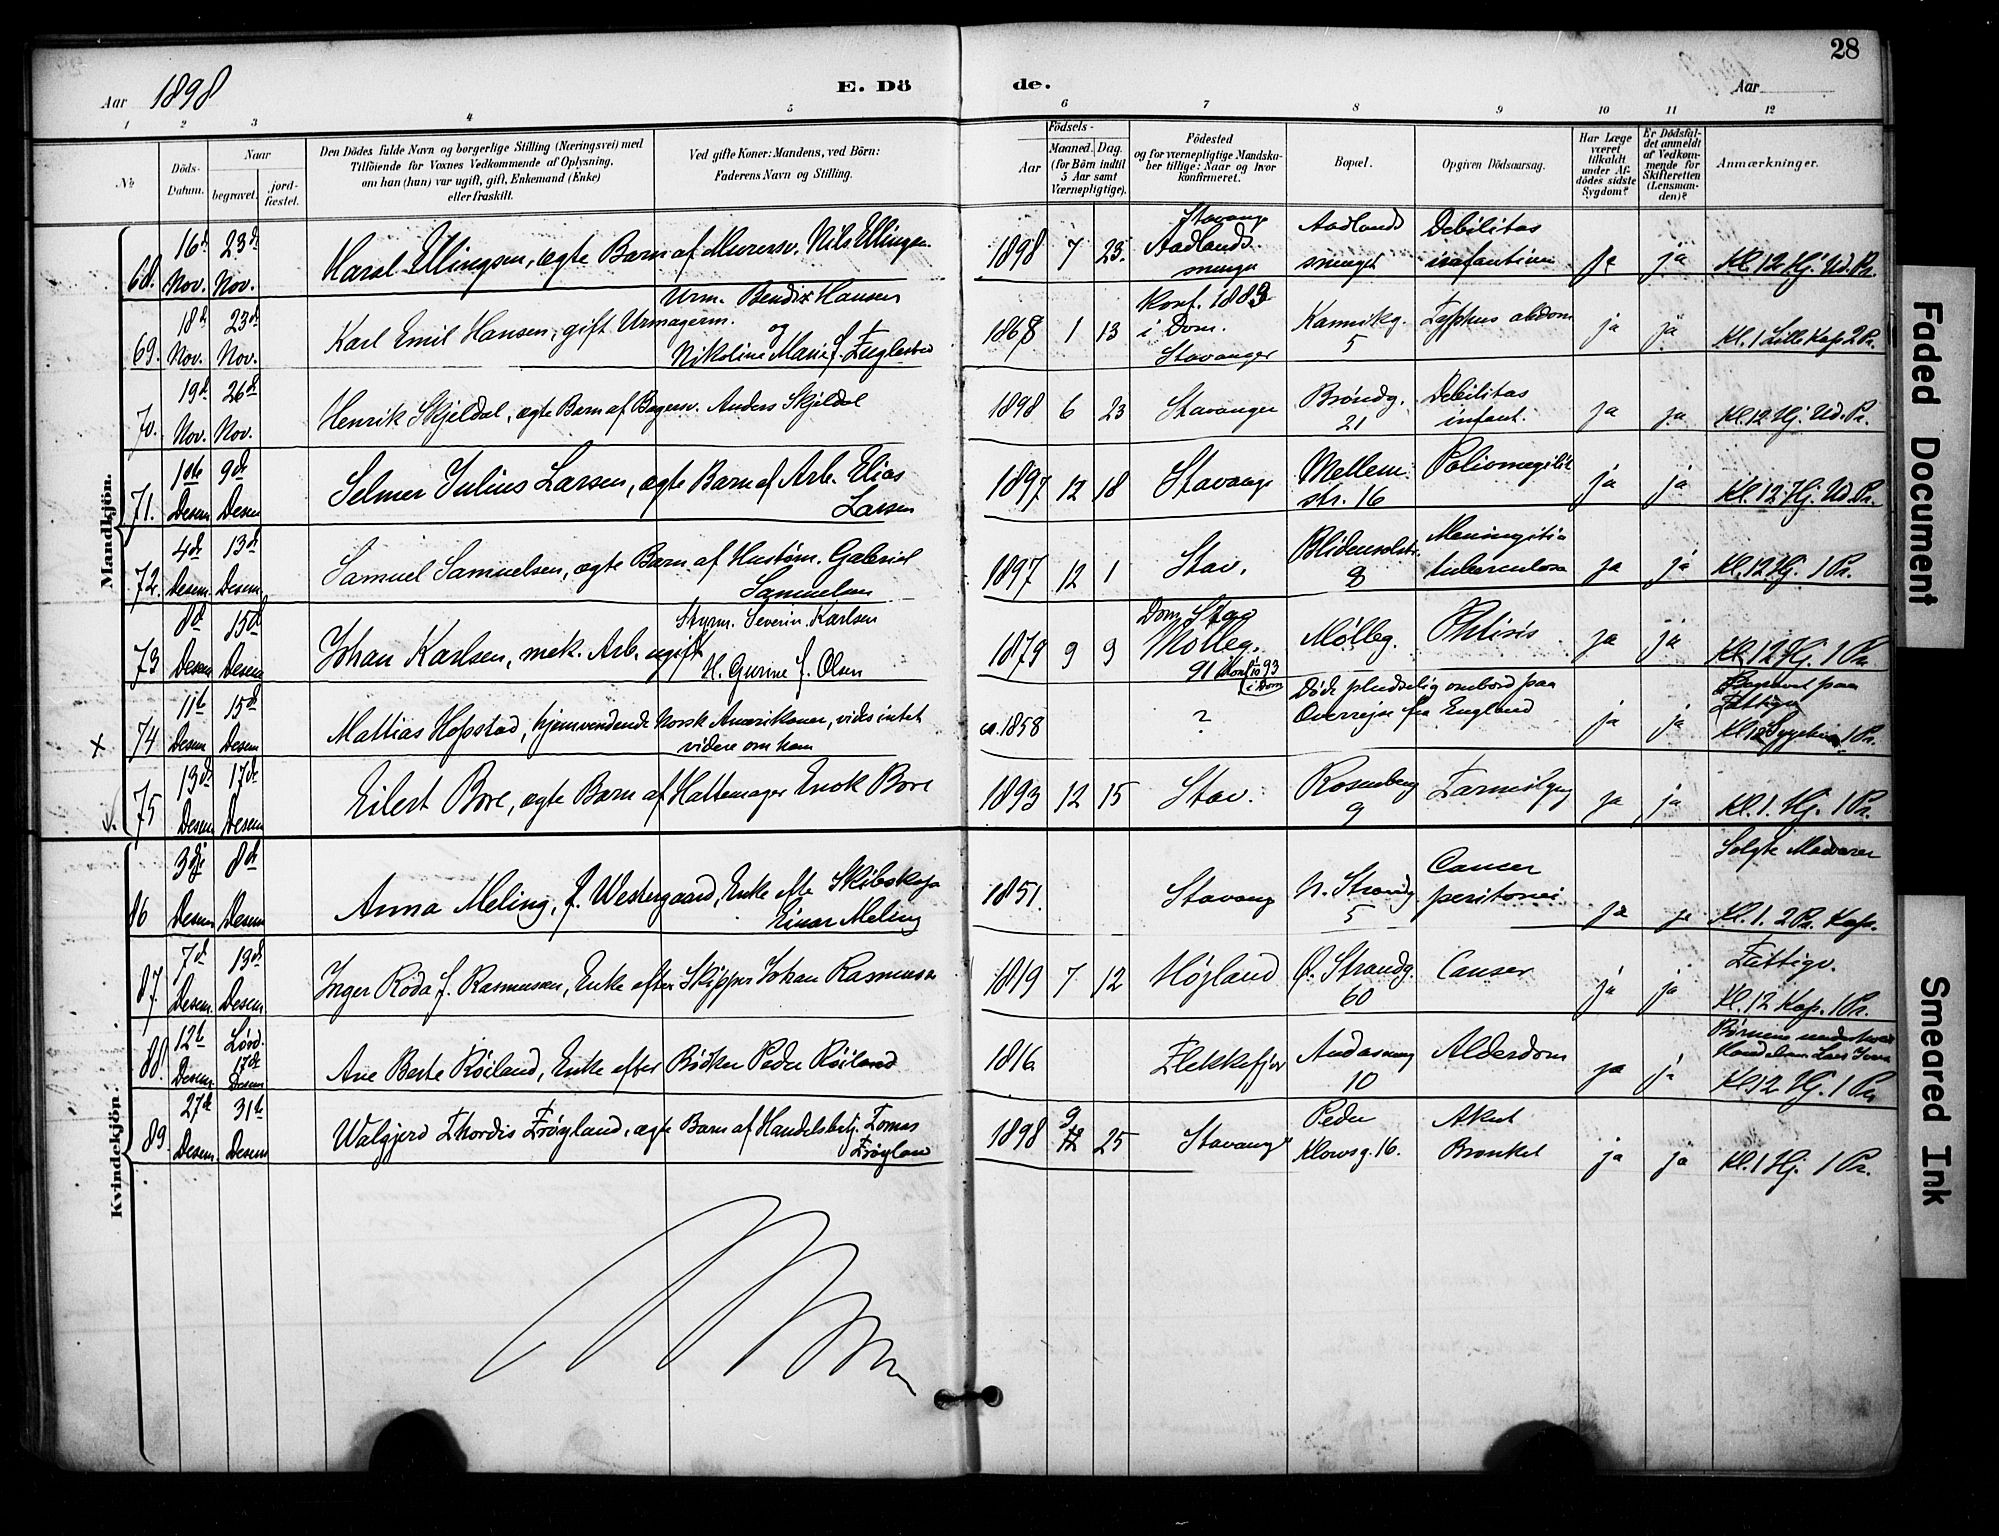 28
Aar 1898
E. Dö de.
Aar
1 2 3 4 5 6 7 8 9 10 11 12
No
Döds-Datum.
Naar
begravet.
jord-fæstet.
Den Dödes fulde Navn og borgerlige Stilling (Næringsvei) med
Tilföiende for Voxnes Vedkommende af Oplysning,
om han (hun) var ugift, gift, Enkemand (Enke)
eller fraskilt.
Ved gifte Koner: Mandens, ved Börn:
Faderens Navn og Stilling.
Födsels-
Aar
Maaned. Dag.
(for Börn indtil
5 Aar samt
Værnepligtige).
Födested
og for værnepligtige Mandska-
ber tillige: Naar og hvor
konfirmeret.
Bopæl.
Opgiven Dödsaarsag.
Har Læge
været
tilkaldt
under Af-
dödes sidste
Sygdom?
Er Dödsfal-
det anmeldt
af Vedkom-
mende for
Skifteretten
(Lensman-
den)?
Anmærkninger.
Mandkjön.
68. 16d Nov. 23d Nov. Haral Ellingsen, ægte Barn af Murersv. Nils Ellingsen 1898 7 23. Stavange Aadlands- Aadlands Debilitas ja ja Kl. 12 Hj. Ud. Pr.
69. 18d Nov. 23d Nov. Karl Emil Hansen, gift Urmagerm.
Urm. Bendix Hansen
og
Nikoline Marie f.
1868 1 13 Konf. 1883 i Dom. Stavanger Kannikg. 5 Typhus abdom ja ja Kl. 1 Lille Kap 2 Pr.
70. 19d Nov. 26d Nov. Henrik Skjeldal, ægte Barn af Bagersv. Anders Skjeldal 1898 6 23 Stavanger Bröndg. 21 Debilitas infant. ja ja Kl. 12 Hj. Ud. Pr.
71. 1ste Desem 9d Desem Selmer Julius Larsen, ægte Barn af Arb. Elias
Larsen
1897 12 18 Stavange Mellem str. 16 ja ja Kl. 12 Hj. Ud. Pr.
72. 4d Desem. 13d Desem. Samuel Samuelsen, ægte Barn af Hustöm. Gabriel
Samuelsen
1897 12 1 Stav. Blidensolstr. 8 Meningitis tuberculosa ja ja Kl. 12 Hj. 1 Pr.
73 8d Desem 15d Desem Johan Karlsen, mek. Arb. ugift
Styrm. Severin Karlsen
H. Gurine f. Olsen
1879 9 9 Dom. Stav Mölleg. 91 Konf 93 i Dom Mölleg. Phtisis ja ja Kl. 12 Hj. 1 Pr.
x 74 11te Desem 15d Desem Mattias Hopstad, hjemvendende Norsk Amerikaner, vides intet
videre om ham
ca. 1858 ? Döde pludselig ombord paa
Overrejse fra England ja ja Begravet paa
Fattigv
75 13d Desem 17d Desem Eilert Bore, ægte Barn af Hattemager Enok Bore 1893 12 15 Stav. Rosenberg 9 ja ja Kl. 1. Hj. 1 Pr.
Kvindekjön.
86 3dje Desem 8d Desem Anna Meling, f. Westergaard, Enke efte Skibskap
Einar Meling
1851. Stavang N. Strandg 5 Canser peritonei. ja ja Solgte Madvarer
Kl. 1. 2 Pr. Kap.
87 7d Desem. 13d Desem Inger Roda f. Rasmussen, Enke efter Skipper Johan Rasmussen 1819 7 12 Höjland Ö. Strandg. 60 Canser ja ja Fattigv.
Kl. 12 Kap. 1 Pr.
88. 12te Desem Lörd. 17de Desem Ane Berte Röiland, Enke efter Bödker Peder Röiland 1816 Flekkefjor 10 Alderdom ja ja
Kl 12 Hj. 1 Pr
89. 27de Desem. 31te Desem Walgjerd Thordis Fröyland, ægte Barn af Handelsbetj. Tomas
Fröylan
1898 9 12 25 Stavang Peder Klowsg. 16. Akut Bronket ja ja Kl. 1 Hj. 1 Pr.
Faded Document
Smeared Ink